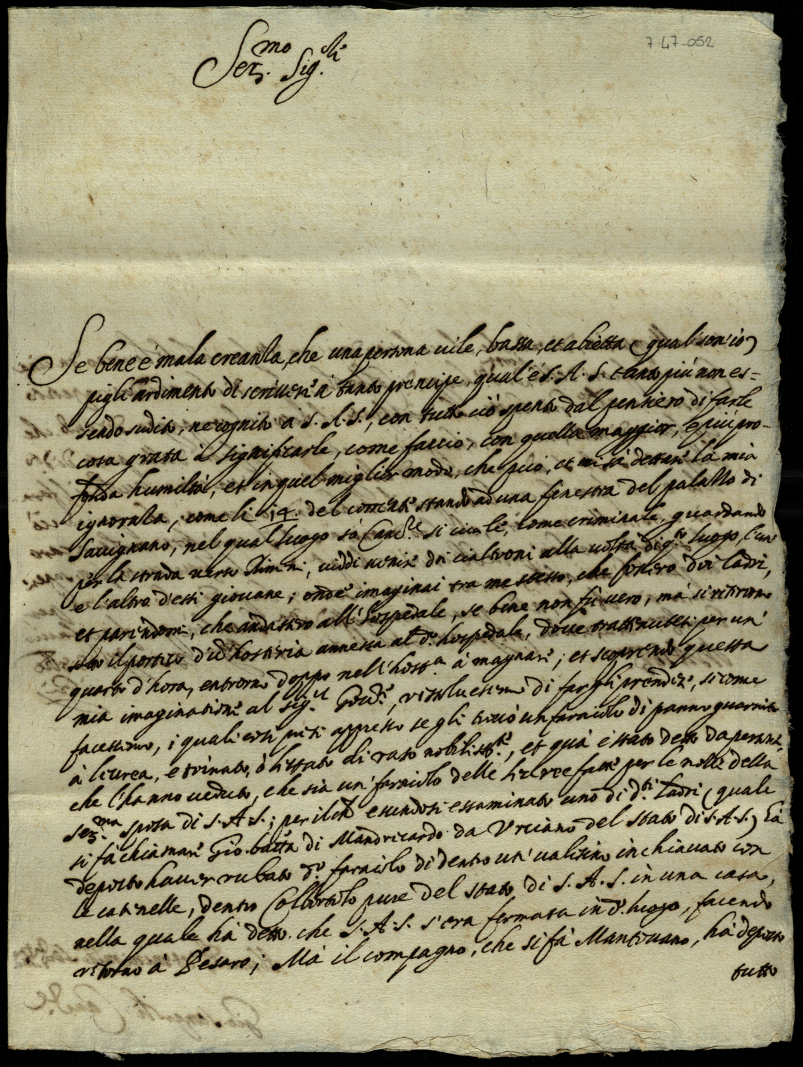 7-47-052
Ser.mo Sig.re
Se bene è mala creanza, che una persona vile, bassa, et abietta (qual son'io)
pigli ardimento di scriver à tanto prencipe, qual'è S. A. S. tanto più non es-
sendo sudito, ne cognito à S. A. S., con tutto ciò spento dal pensiero di farle
cosa grata il significarle, come faccio, con quella maggior, e più pro-
fonda humiltà, et in quel miglior modo, che può, et mi sà dettar la mia
ignoranza, come li 14. del corrente stando ad una fenestra del palazzo di
Savignano, nel qual luogo sò Canc.re sì civile, come criminale, guardando
per la strada verso Rimini, viddi venir doi cialtroni alla volta di q.to luogo, l'un
e l'altro d'essi giovane; onde imaginai tra me stesso, che fossero doi ladri,
et parendomi, che andassero all'hospedale, se bene non fu vero, mà si ritirorno
sotto il portico d'un'hosteria annessa al d.o hospedale, dove trattenutesi per un'
quarto d'hora, entrorno doppo nell'host.a à magnar; et scoprendo questa
mia imaginatione al sig.r Gov.re, rissolvessimo di fargli prender, si come
facessimo, i quali così presi appresso se gli trovò un faraiolo di panno guarnito
à livrea, e trinato, ò listato di raso nobiliss.te, et quà è stato detto da persone,
che l'hanno veduto, che sia un' faraiolo delle livree fatte per le nozze della
Ser.ma sposa di S. A. S.; per il che essendosi essaminato uno di d.ti ladri (quale
si fà chiamar Gio. batta di Mandricardo da Urciano del stato di S. A. S.) hà
deposto haver rubato d.o faraiolo di dentro un' valisino inchiavato con
le catenelle, dentro Colbordolo pure del stato di S. A. S. in una casa,
nella quale hà detto che S. A. S. s'era fermata in d.o luogo, facendo
ritorno à Pesaro; Mà il compagno, che si fà Mantovano, hà deposto
tutto